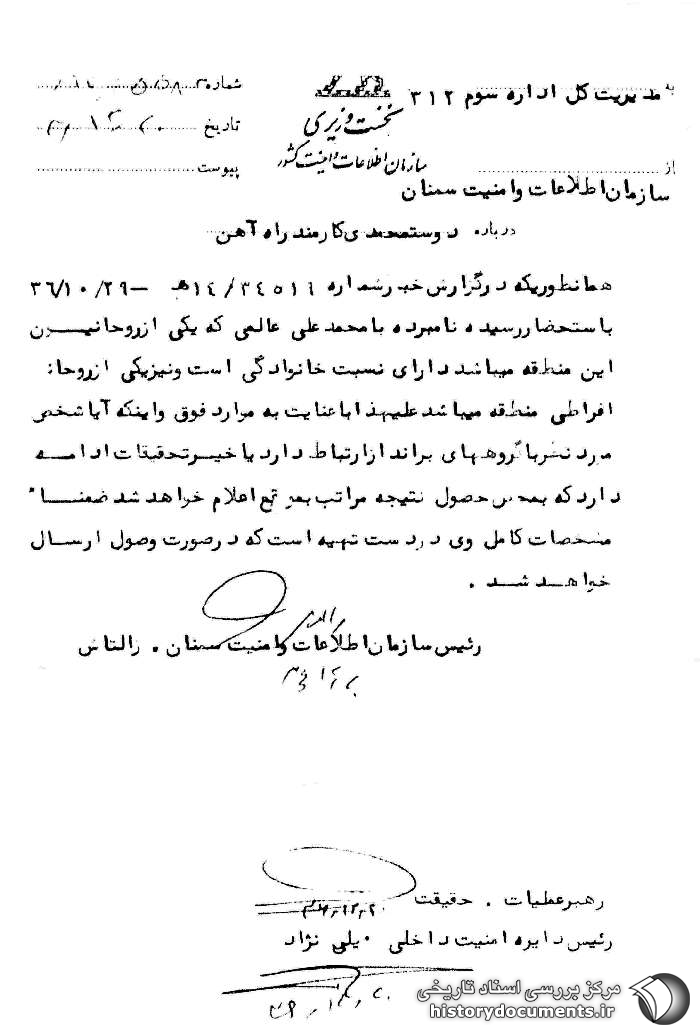 به مدیریت کل اداره سوم ۳۱۲
شماره
نخست وزیری
تاریخ
سازمان اطلاعات و امنیت کشور
پیوست
از
سازمان اطلاعات و امنیت سمنان
درباره دوستمحمدی کارمند راه آهن
همانطوریکه در گزارش خبر شماره ۱٤/۳٤۵۱۱ هـ – ۳۶/۱۰/۲۹
باستحضار رسیده نامبرده با محمد علی عالمی که یکی از روحانیون
این منطقه میباشد دارای نسبت خانوادگی است و نیز یکی از روحانـ
افراطی منطقه میباشد علیهذا با عنایت به موارد فوق و اینکه آیا شخص
مورد نظر با گروههای برانداز ارتباط دارد یا خیر تحقیقات ادامه
دارد که بمحض حصول نتیجه مراتب بموقع اعلام خواهد شد ضمنا"
مشخصات کامل وی در دست تهیه است که در صورت وصول ارسال
خواهد شد .
رئیس سازمان اطلاعات و امنیت سمنان . زالتاش
رهبر عملیات . حقیقت
رئیس دایره امنیت داخلی . یلی نژاد
مرکز بررسی اسناد تاریخی
historydocuments.ir